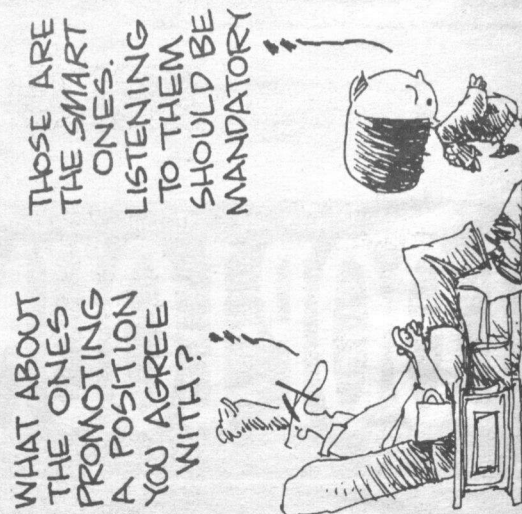 WHAT ABOUT
THE ONES
PROMOTING
A POSITION
YOU AGREE
WITH?
THOSE ARE
THE SMART
ONES.
LISTENING
TO THEM
SHOULD BE
MANDATORY